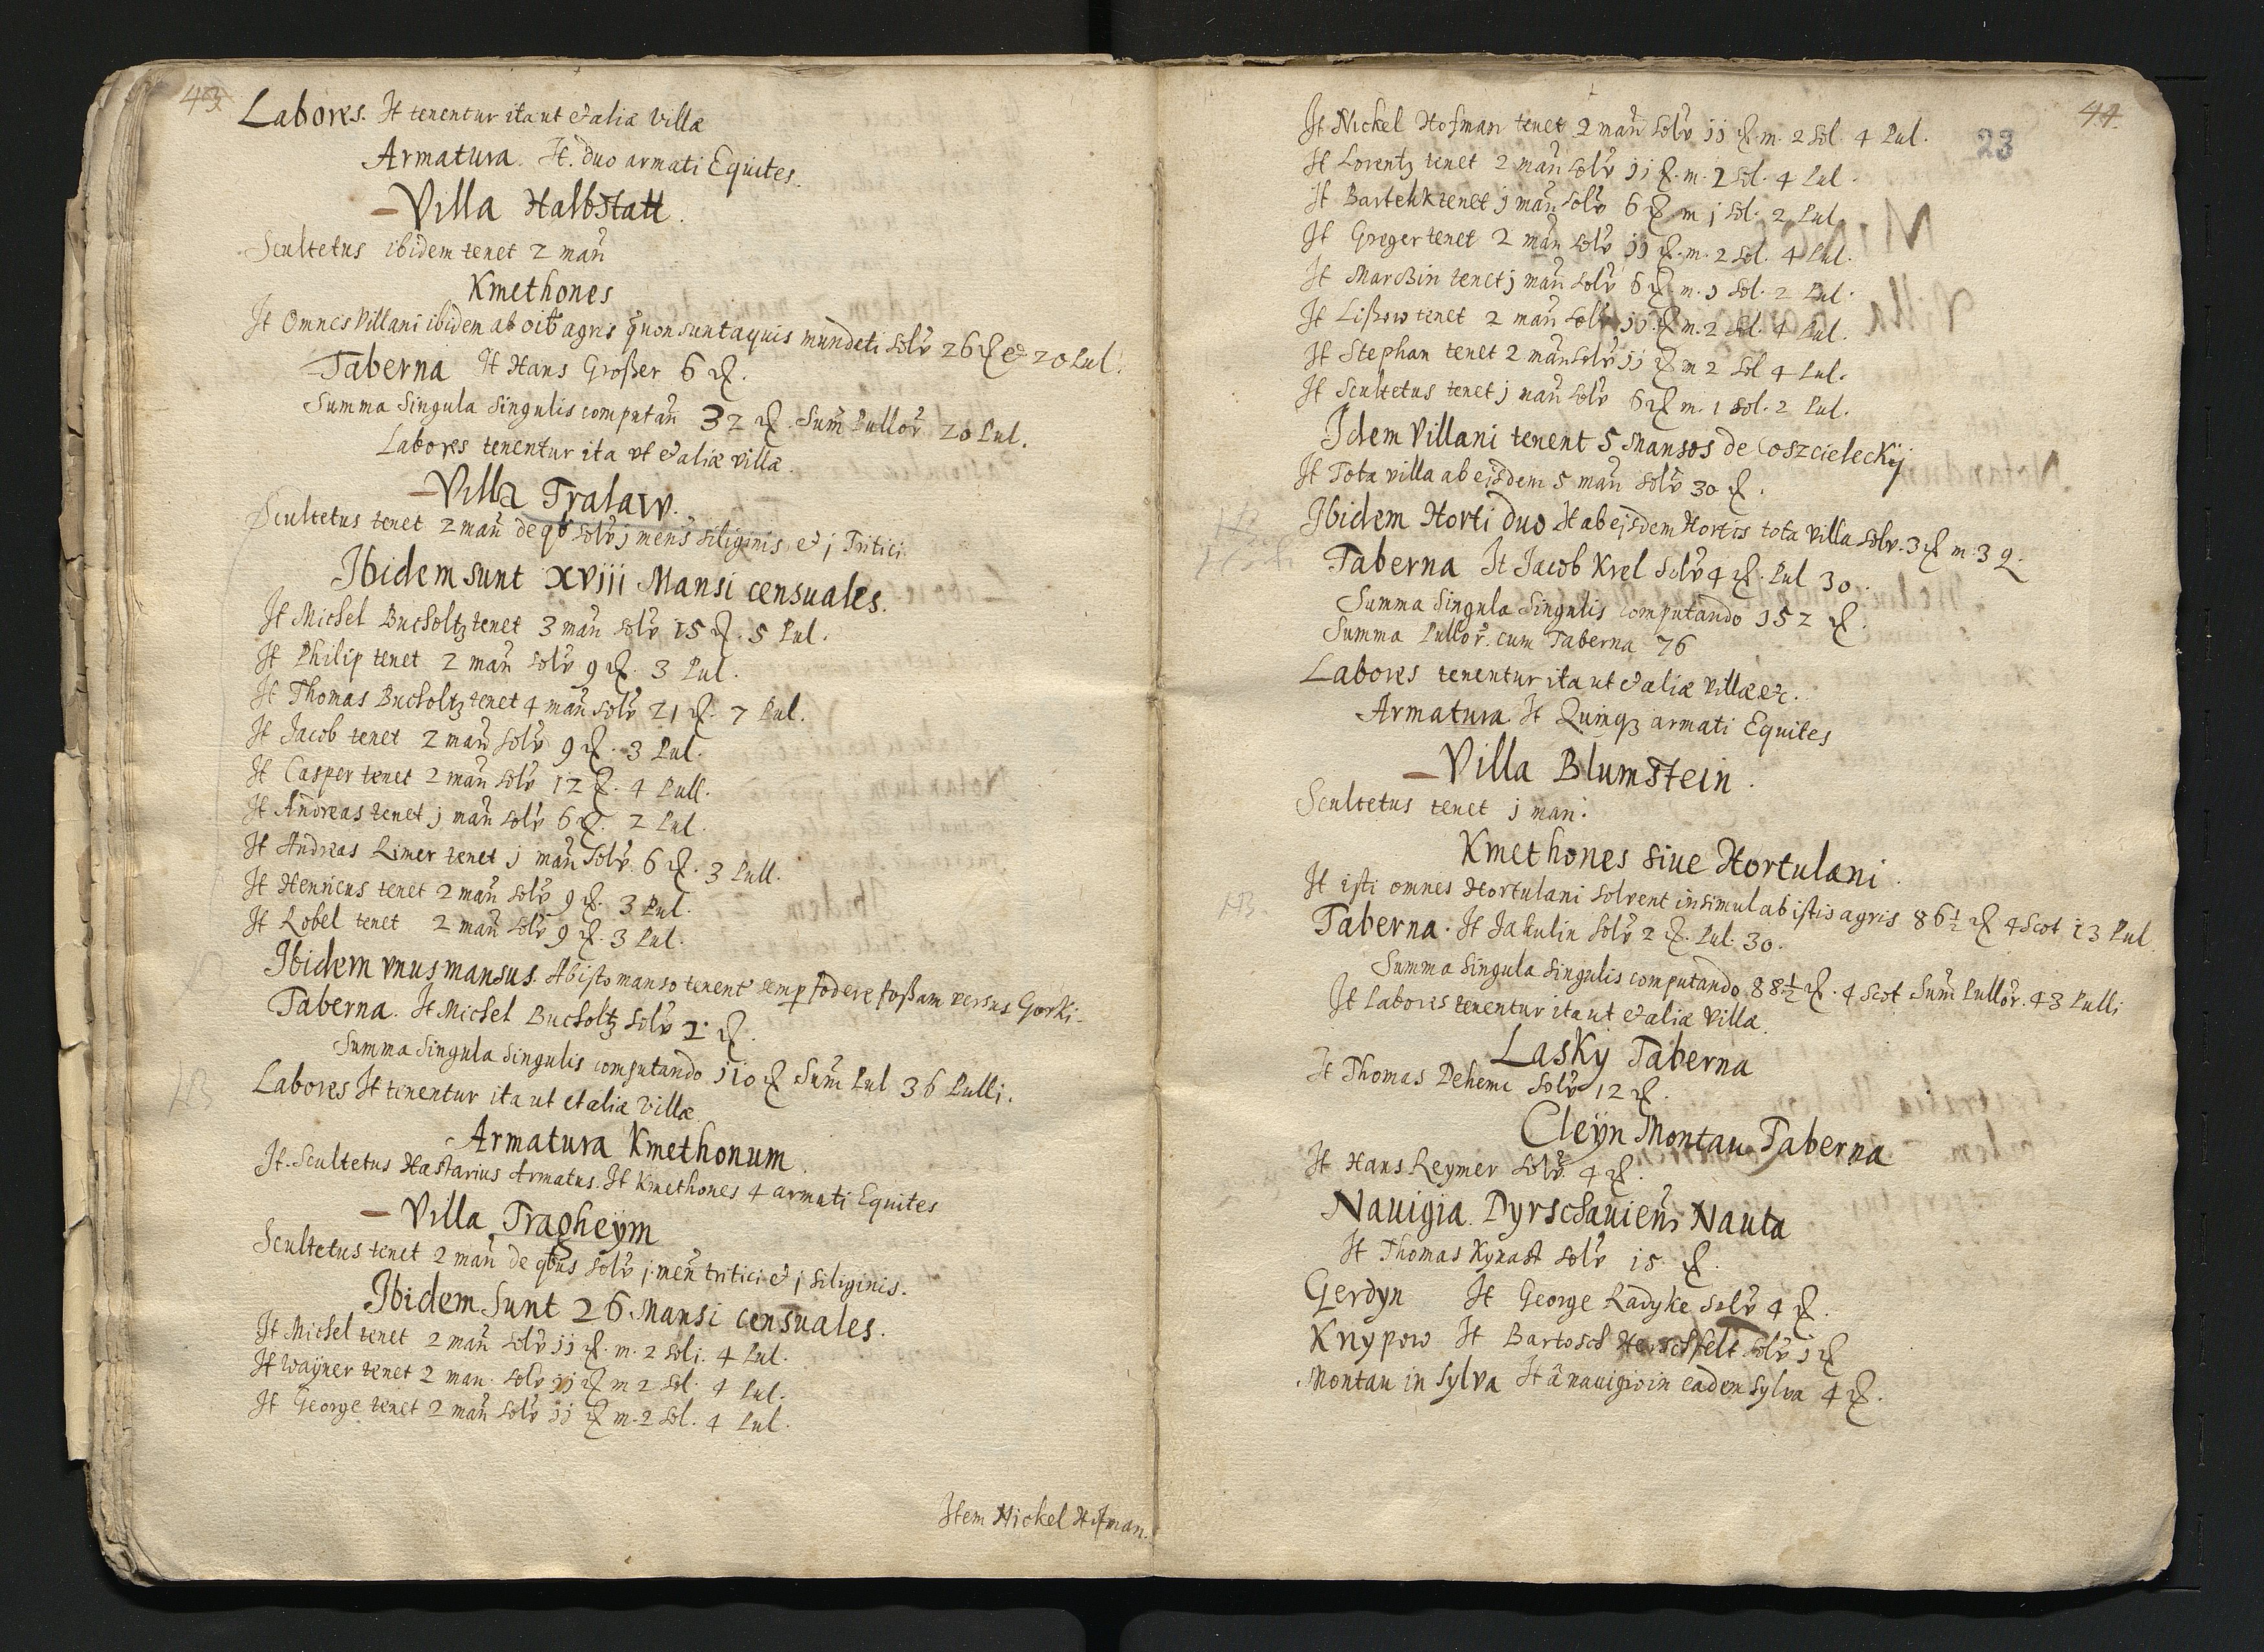 43.
Labores. It tenentur ita ut et aliæ villæ
Armatura. It. duo armati Equites.
Villa Halbstatt.
Scultetus ibidem tenet 2 mañ
Kmethones
It Omnes Villani ibidem ab oib agris q̃ non sunt aquis mundeti Solv̄ 26 ₰ et 20 Pul.
Taberna It Hans Großer 6 ₰.
Summa Singula Singulis computañ 32 ₰. Sum̃ Pullor̃ 20 Pul.
Labores tenentur ita vt et aliæ villæ.
Villa Tralaw.
Scultetus tenet 2 mañ de qb solv̄ j mens siliginis et j Tritici.
Ibidem sunt xviii Mansi censuales.
It Michel Bucholtz tenet 3 mañ solv̄ 15 ₰. 5 Pul.
It Philip tenet 2 mañ solv̄ 9 ₰. 3 Pul.
It Thomas Bucholtz tenet 4 mañ solv̄ 21 ₰. 7 Pul.
It Jacob tenet 2 mañ solv̄ 9 ₰. 3 Pul.
It Casper tenet 2 mañ solv̄ 12 ₰. 4 Pull.
It Andreas tenet j mañ solv̄ 6 ₰. 2 Pul.
It Andreas Rimer tenet j mañ solv̄ 6 ₰. 3 Pull.
It Henricus tenet 2 mañ solv̄ 9 ₰. 3 Pul.
It Robel tenet 2 mañ solv̄ 9 ₰. 3 Pul.
Ibidem vnus mansus. Ab isto manso tenent semp fodere foßam versus Gorki.
Taberna. It Michel Bucholtz solv̄ 2 ₰.
Summa Singula Singulis computando 110 ₰ Sum̃ Pul 36 Pulli.
Labores It tenentur ita ut et aliæ villæ
Armatura Kmethonum.
It. Scultetus Hastarius Armatus. It Kmethones 4 armati Equites
Villa Tragheÿm
Scultetus tenet 2 mañ de qbus solv̄ j meñ tritici et j siliginis.
Ibidem Sunt 26 Mansi censuales.
It Michel tenet 2 mañ solv̄ jj ₰. m. 2 soli. 4 Pul.
It Waÿner tenet 2 man. solv̄ jj ₰ m 2 sol. 4 Pul.
It George tenet 2 mañ solv̄ jj ₰ m. 2 sol. 4 Pul.
Item Nickel Hofman.
44.
23
It Nickel Hofman tenet 2 mañ solv̄ jj ₰. m. 2 sol. 4 Pul.
It Lorentz tenet 2 mañ solv̄ jj ₰. m. 2 sol. 4 Pul.
It Bartehk tenet j mañ solv̄ 6 ₰ m j sol. 2 Pul.
It Greger tenet 2 mañ solv̄ jj ₰. m. 2 sol. 4 Pul.
It Marczin tenet j mañ solv̄ 6 ₰. m. j sol. 2 Pul.
It Lißow tenet 2 mañ solv̄ jj. ₰ m. 2 sol. 4 Pul.
It Stephan tenet 2 mañ solv̄ jj ₰ m 2 sol 4 Pul.
It Scultetus tenet j mañ solv̄ 6 ₰ m. 1 sol. 2 Pul.
Idem Villani tenent 5 Mansos de Coszcieleckij
It Tota villa ab eisdem 5 mañ solv̄ 30 ₰.
Ibidem Horti duo It ab eisdem Hortis tota villa solv. 3 ₰ m. 3 q.
Taberna It Jacob Krel Solv̄ 4 ₰. Pul 30.
Summa Singula Singulis computando 152 ₰.
Summa Pullor̃. cum Taberna 76
Labores tenentur ita ut et aliæ villæ etc.
Armatura. It Quinqꝫ armati Equites
Villa Blumstein.
Scultetus tenet j man.
Kmethones siue Hortulani.
It isti omnes Hortulani solvent insimul ab istis agris 86½ ₰ 4 Scot 13 Pul.
Taberna. It Jakulin solv̄ 2 ₰. Pul. 30.
Summa Singula Singulis computando 88½ ₰. 4 Scot Sum̃ Pullor̃. 43 Pulli
It Labores tenentur ita ut et aliæ Villæ.
Lasky Taberna
It Thomas Behem solv̄ 12 ₰.
Cleÿn Montau Taberna
It Hans Reymer solv̄. 4 ₰.
Nauigia. Dyrschauieñ Nauta
It Thomas Kynast solv̄ 15 ₰.
Gerdyn It George Radyke solv̄ 4 ₰.
Knypow It Bartosch Herschfelt solv̄ j ₰
Montau in sylva It â nauigio in eadem sylva 4 ₰.